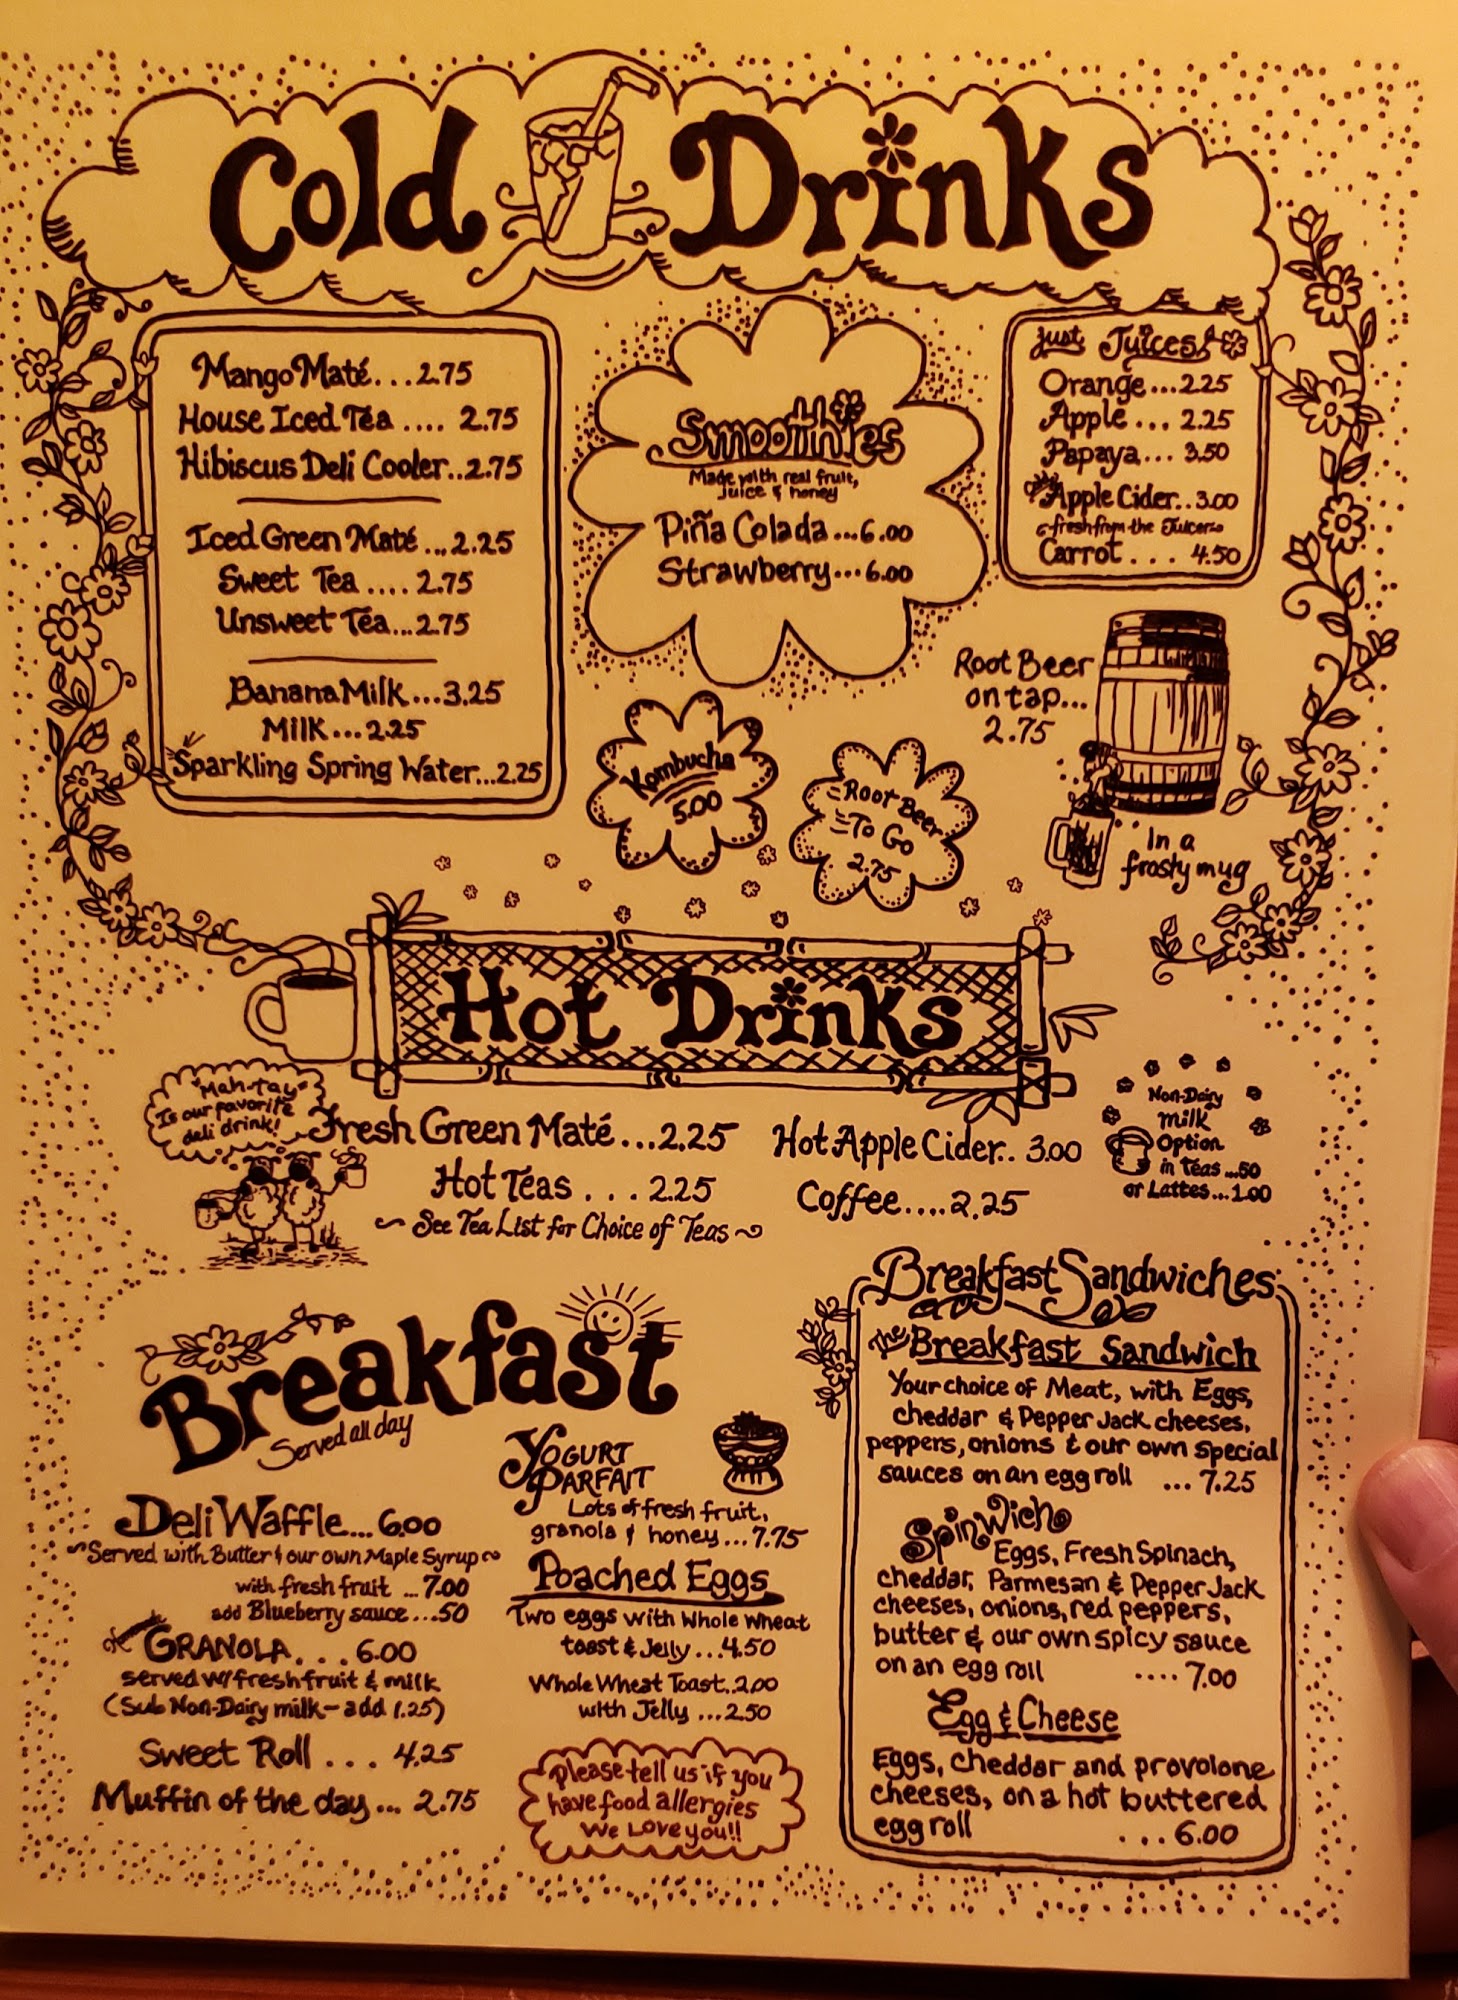 Cold Drinks
Mango Maté...2.75
House Iced Tea .... 2.75
Hibiscus Deli Cooler..2.75
Iced Green Maté ...2.25
Sweet Tea .... 2.75
Unsweet Tea...2.75
Banana Milk...3.25
Milk...2.25
Sparkling Spring Water...2.25
Smoothies
Made with real fruit,
juice & honey
Piña Colada...6.00
Strawberry...6.00
Just Juices
Orange...2.25
Apple... 2.25
Papaya... 3.50
Apple Cider..3.00
fresh from the Juicer
Carrot... 4.50
Root Beer
on tap...
2.75
In a
frosty mug
Kombucha
5.00
Root Beer
To Go
2.75
Hot Drinks
"Mah-tay"
Is our favorite
deli drink!
Fresh Green Maté...2.25
Hot Teas...2.25
See Tea List for Choice of Teas
Hot Apple Cider.. 3.00
Coffee....2.25
Non-Dairy
Milk
Option
in Teas ...50
or Lattes...1.00
Breakfast
Served all day
Deli Waffle... 6.00
Served with Butter & our own Maple Syrup
with fresh fruit ...7.00
add Blueberry sauce...50
GRANOLA...6.00
served w/fresh fruit & milk
(Sub Non-Dairy milk - add 1.25)
Sweet Roll... 4.25
Muffin of the day... 2.75
YOGURT
PARFAIT
Lots of fresh fruit,
granola & honey...7.75
Poached Eggs
Two eggs with Whole Wheat
toast & Jelly...4.50
Whole Wheat Toast.2.00
with Jelly ...2.50
Please tell us if you
have food allergies
We Love you!!
Breakfast Sandwiches
The Breakfast Sandwich
Your choice of Meat, with Eggs,
cheddar & Pepper Jack cheeses,
peppers, onions & our own special
sauces on an egg roll ...7.25
Spinwich
Eggs, Fresh Spinach,
cheddar, Parmesan & Pepper Jack
cheeses, onions, red peppers,
butter & our own spicy sauce
on an egg roll ....7.00
Egg & Cheese
Eggs, cheddar and provolone
cheeses, on a hot buttered
egg roll ...6.00